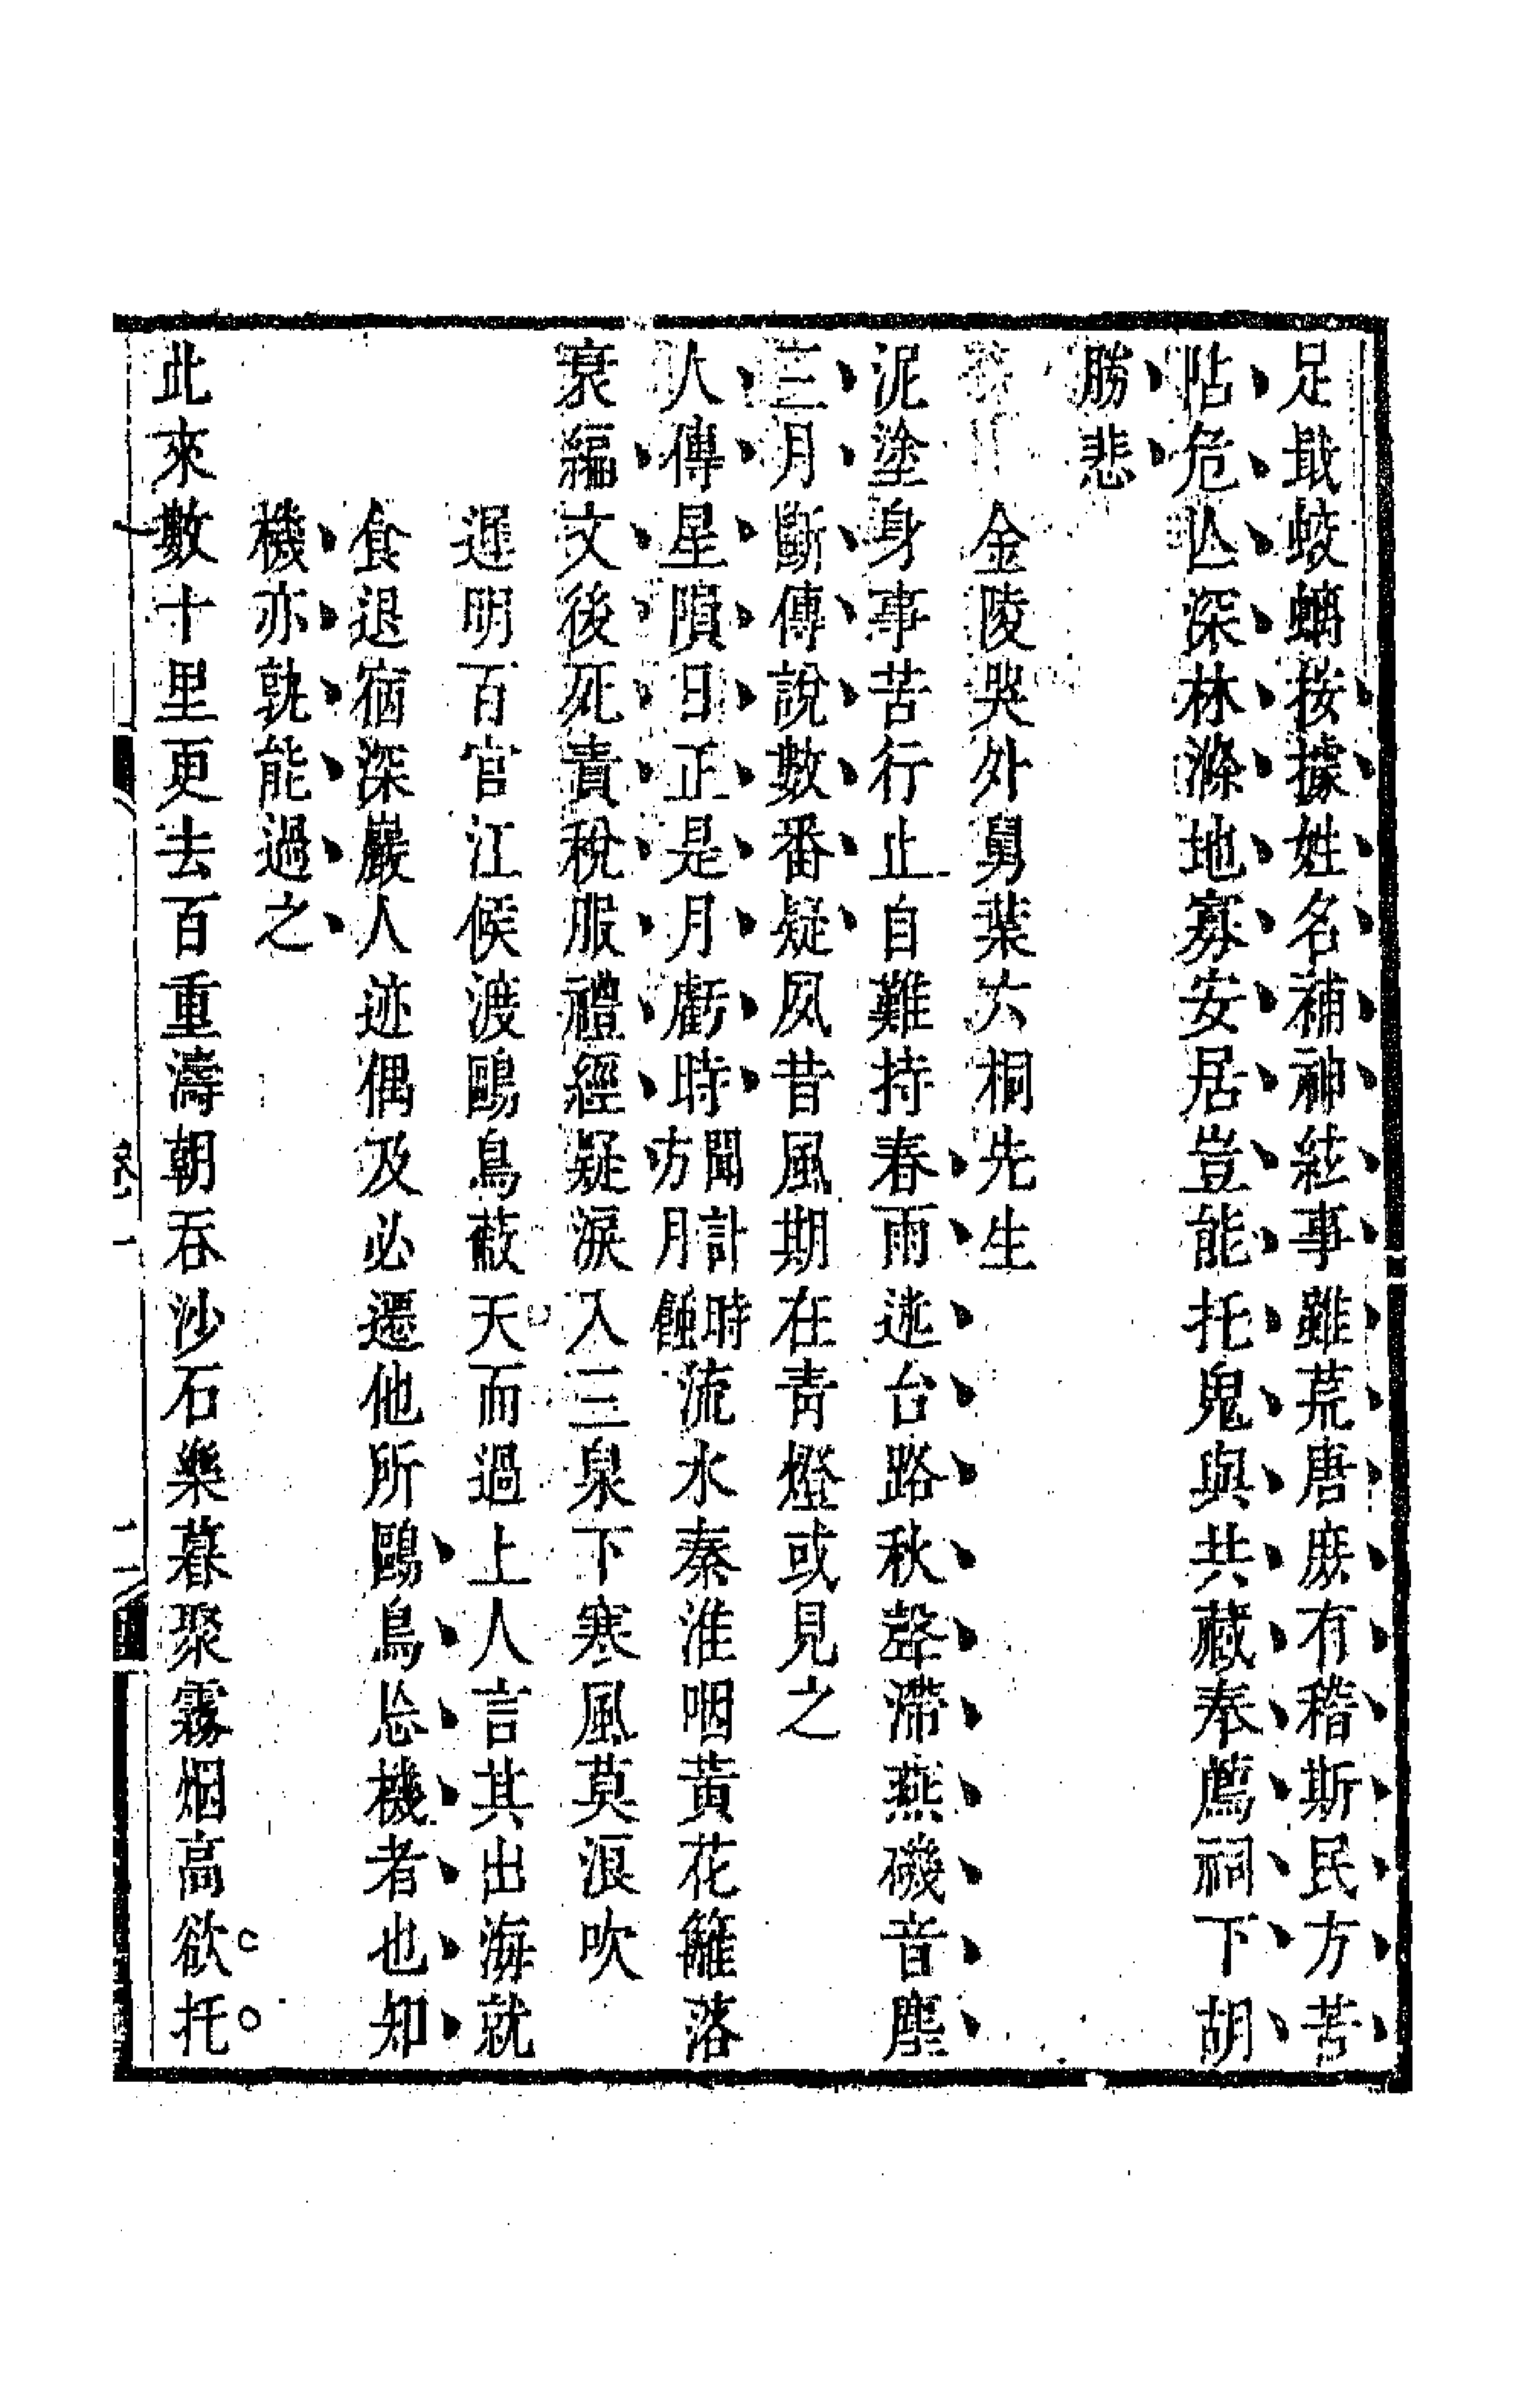 足戢蛟螭按據姓名補神紝事雖荒唐庶有稽斯民方苦
阽危亾深林滌地寡安居豈能托鬼與共藏奉薦祠下胡
勝悲
金陵哭外舅葉六桐先生
泥塗身事苦行止自難持春雨迷台路秋聲滯燕磯音塵
三月斷傳說數番疑夙昔風期在青燈或見之
人傳星隕日正是月虧時聞訃時方月蝕流水秦淮咽黃花籬落
衰編文後死責稅服禮經疑淚入三泉下寒風莫浪吹
遲明百官江候渡鷗鳥蔽天而過上人言其出海就
食退宿深巖人迹偶及必遷他所鷗鳥忘機者也知
機亦孰能過之
此來數十里更去百重濤朝吞沙石樂暮聚霧烟高欲托
卷一
二